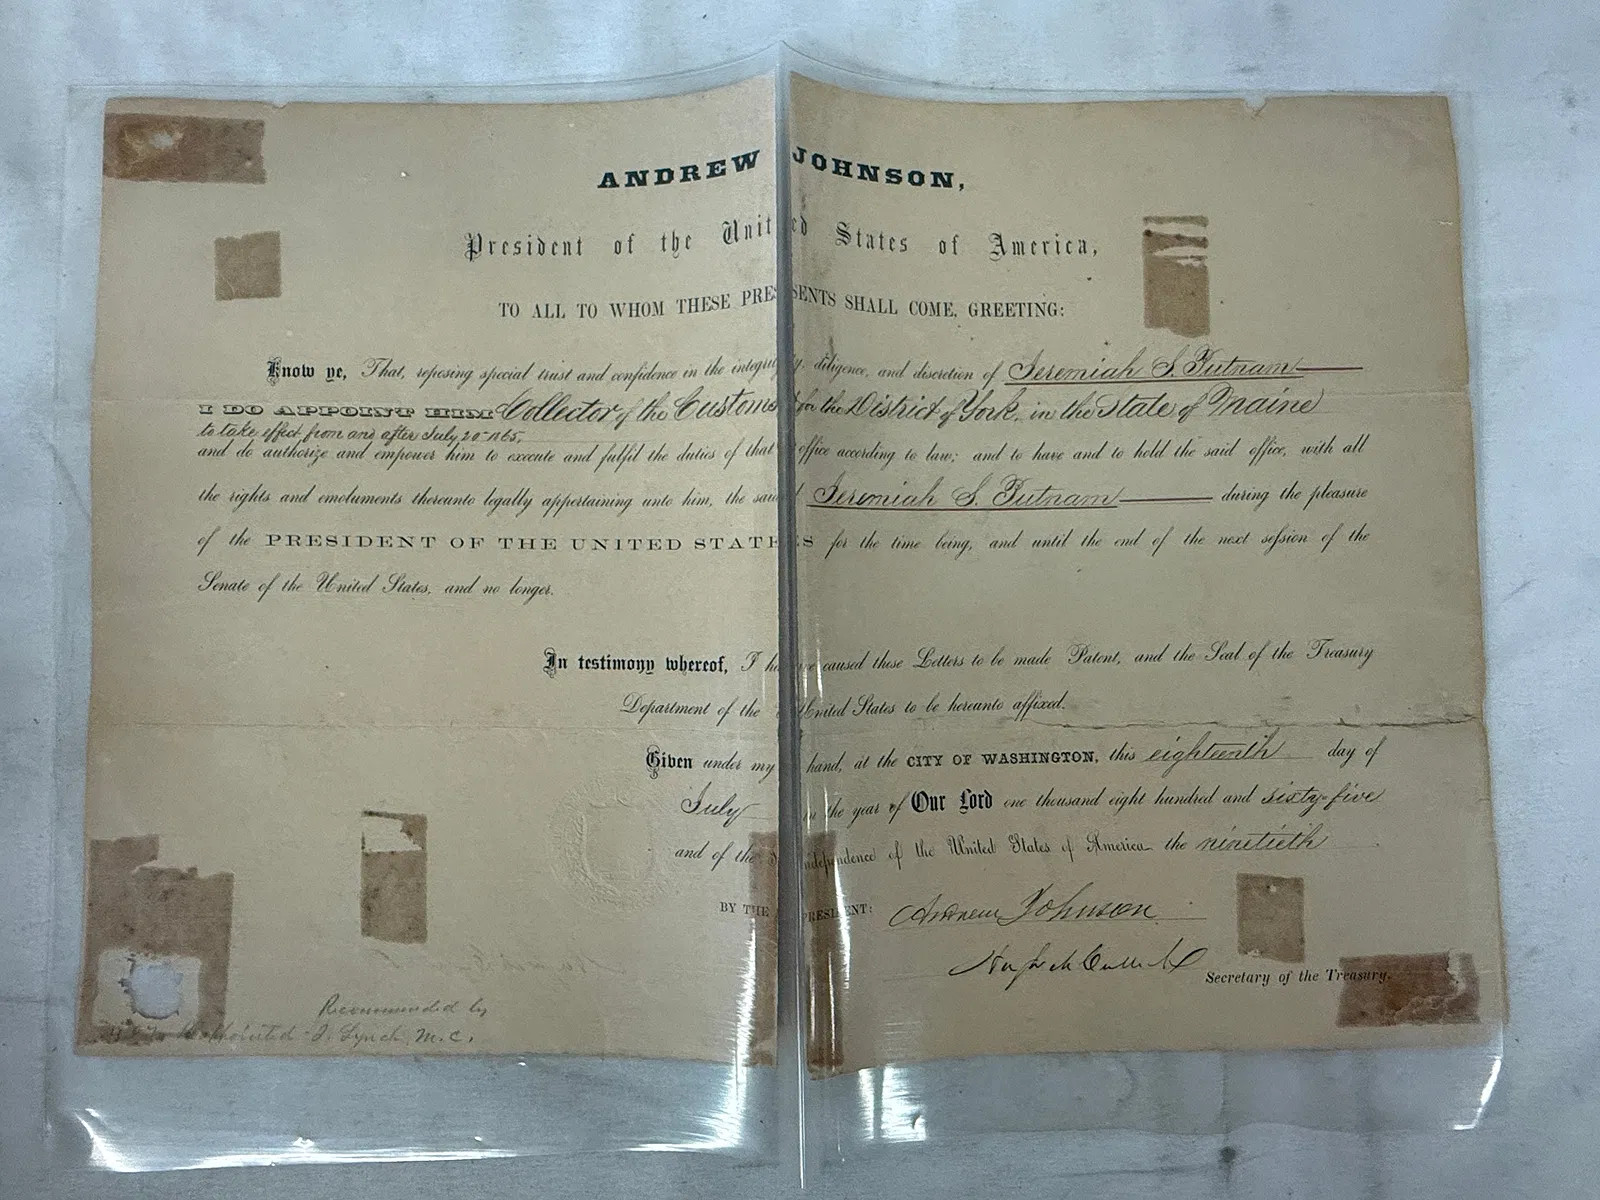 ANDREW JOHNSON,
President of the United States of America,
TO ALL TO WHOM THESE PRESENTS SHALL COME, GREETING:
Know ye, That, reposing special trust and confidence in the integrity, diligence, and discretion of Jeremiah S. Putnam
I DO APPOINT HIM Collector of the Customs for the District of York, in the State of Maine
to take effect from and after July 20 1865,
and do authorize and empower him to execute and fulfil the duties of that office according to law; and to have and to hold the said office, with all
the rights and emoluments thereunto legally appertaining unto him, the said Jeremiah S. Putnam during the pleasure
of the PRESIDENT OF THE UNITED STATES for the time being, and until the end of the next session of the
Senate of the United States, and no longer.
In testimony whereof, I have caused these Letters to be made Patent, and the Seal of the Treasury
Department of the United States to be hereunto affixed.
Given under my hand, at the CITY OF WASHINGTON, this eighteenth day of
July in the year of Our Lord one thousand eight hundred and sixty-five
and of the Independence of the United States of America the ninetieth
BY THE PRESIDENT: Andrew Johnson
Hugh McCulloch Secretary of the Treasury.
Recommended by
J. Lynch, M.C.